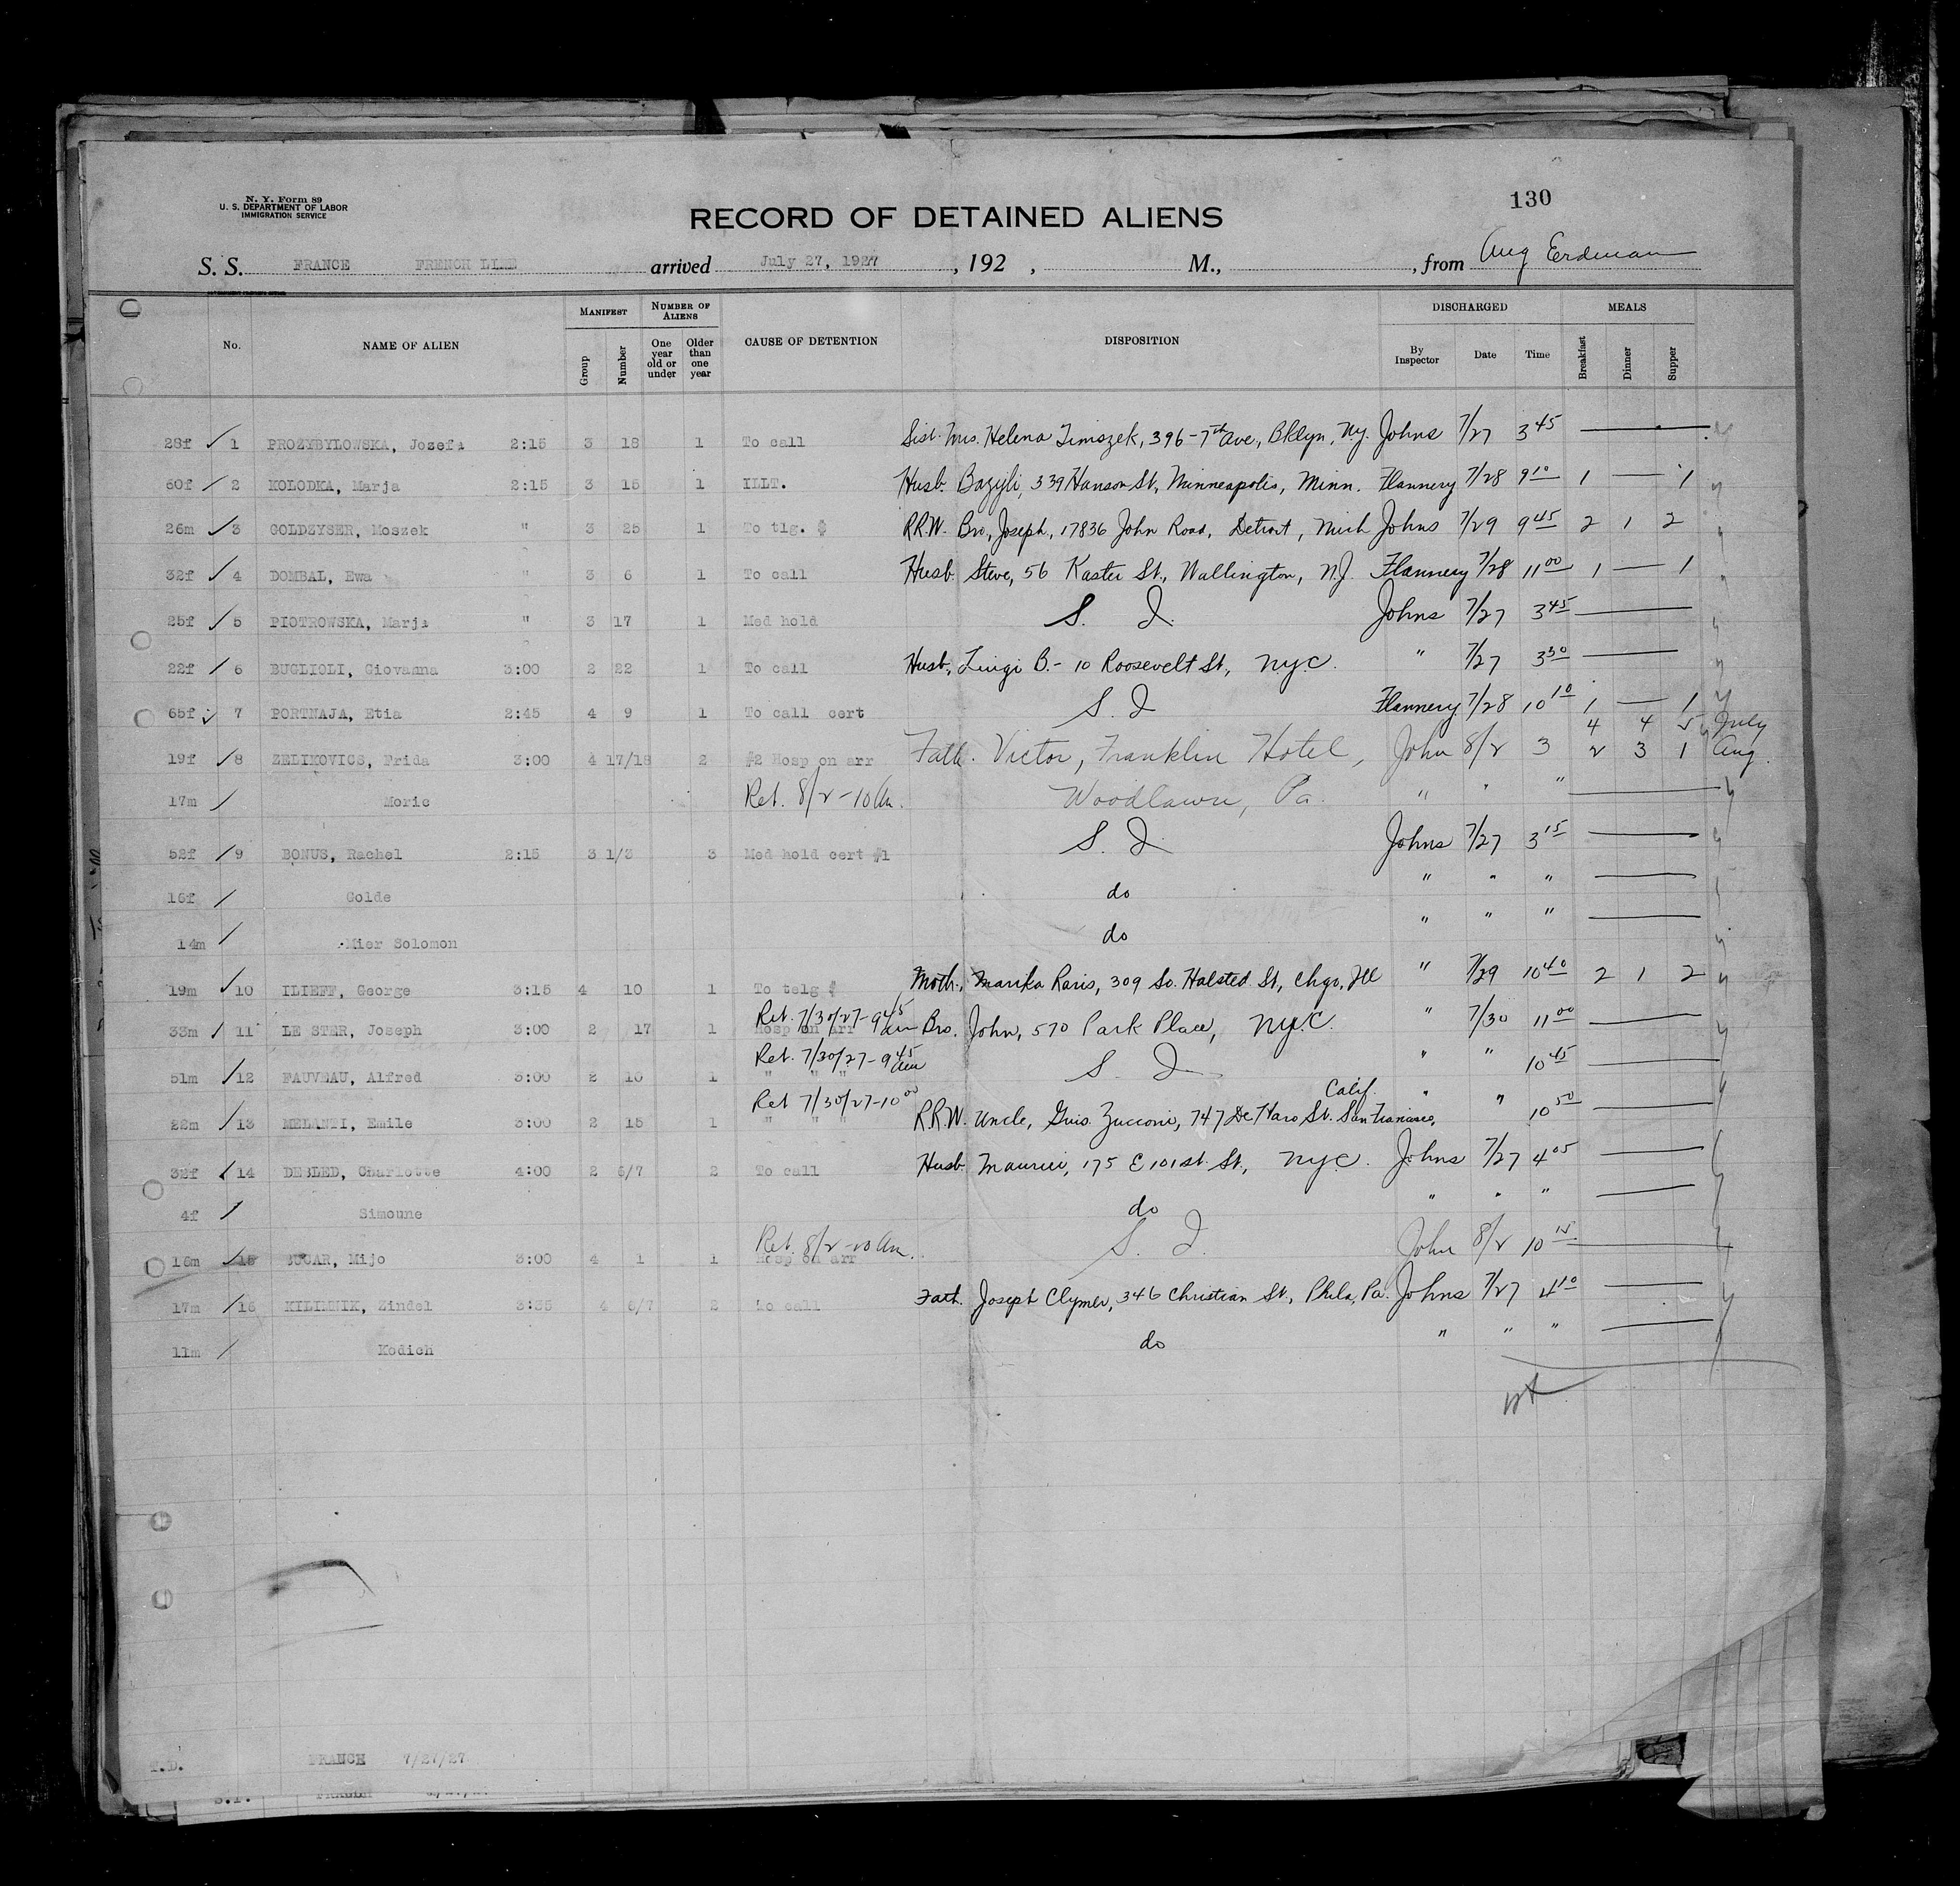 N. Y. Form 89
U. S. DEPARTMENT OF LABOR
IMMIGRATION SERVICE
130
RECORD OF DETAINED ALIENS
S. S. FRANCE FRENCH LINE arrived July 27, 1927, 192 , M., , from Aug Erdman
No. NAME OF ALIEN MANIFEST Group Number NUMBER OF ALIENS One year old or under Older than one year CAUSE OF DETENTION DISPOSITION DISCHARGED By Inspector Date Time MEALS Breakfast Dinner Supper
28f 1 PROZYBYLOWSKA, Jozefa 2:15 3 18 1 To call Sist. Mrs. Helena Timszek, 396-7th Ave., Bklyn, N.Y. Johns 7/27 3 45
60f 2 KOLODKA, Marja 2:15 3 15 1 ILLT. Husb. Bazyli, 339 Hanson St., Minneapolis, Minn. Flannery 7/28 9 10 1 — 1
26m 3 GOLDZYSER, Moszek " 3 25 1 To tlg. $ R.R.W. Bro, Joseph, 17836 John Road, Detroit, Mich Johns 7/29 9 45 2 1 2
32f 4 DOMBAL, Ewa " 3 6 1 To call Husb. Steve, 56 Kaster St., Wallington, N.J. Flannery 7/28 11 00 1 — 1
25f 5 PIOTROWSKA, Marja " 3 17 1 Med hold S. I. Johns 7/27 3 45
22f 6 BUGLIOLI, Giovanna 3:00 2 22 1 To call Husb, Luigi B.- 10 Roosevelt St., N.Y.C. " 7/27 3 30
65f 7 PORTNAJA, Etia 2:45 4 9 1 To call cert S. I Flannery 7/28 10 10 1 — 1
4 4 5 July
19f 8 ZELIKOVICS, Frida 3:00 4 17/18 2 #2 Hosp on arr Fath. Victor, Franklin Hotel, John 8/2 3 2 3 1 Aug.
17m Moric Ret. 8/2-10 Am. Woodlawn, Pa. " " "
52f 9 BONUS, Rachel 2:15 3 1/3 3 Med hold cert #1 S. I Johns 7/27 3 15
16f Golde do " " "
14m Mier Solomon do " " "
19m 10 ILIEFF, George 3:15 4 10 1 To telg $ Moth., Marika Raris, 309 So. Halsted St., Chgo, Ill " 7/29 10 40 2 1 2
Ret. 7/30/27-9 45 am
33m 11 LE STER, Joseph 3:00 2 17 1 Hosp on arr Bro. John, 570 Park Place, N.Y.C. " 7/30 11 00
Ret. 7/30/27-9 45 Am
51m 12 FAUVEAU, Alfred 3:00 2 10 1 " " " S. I " " 10 45
Ret 7/30/27-10 00 Calif.
22m 13 MELANTI, Emile 3:00 2 15 1 " " " R.R.W. Uncle, Guis. Zucconi, 747 De Haro St. San Francisco, " " 10 50
32f 14 DEBLED, Charlotte 4:00 2 6/7 2 To call Husb. Maurice, 175 E 101st. St., N.Y.C. Johns 7/27 4 05
4f Simoune do " " "
Ret. 8/2-10 Am.
16m 15 BUCAR, Mijo 3:00 4 1 1 Hosp on arr S. I. John 8/2 10 15
17m 16 KILIMNIK, Zindel 3:35 4 6/7 2 To call Fath. Joseph Clymer, 346 Christian St., Phila, Pa. Johns 7/27 4 10
11m Kodich do " " "
T.D. FRANCE 7/27/27
S.I.